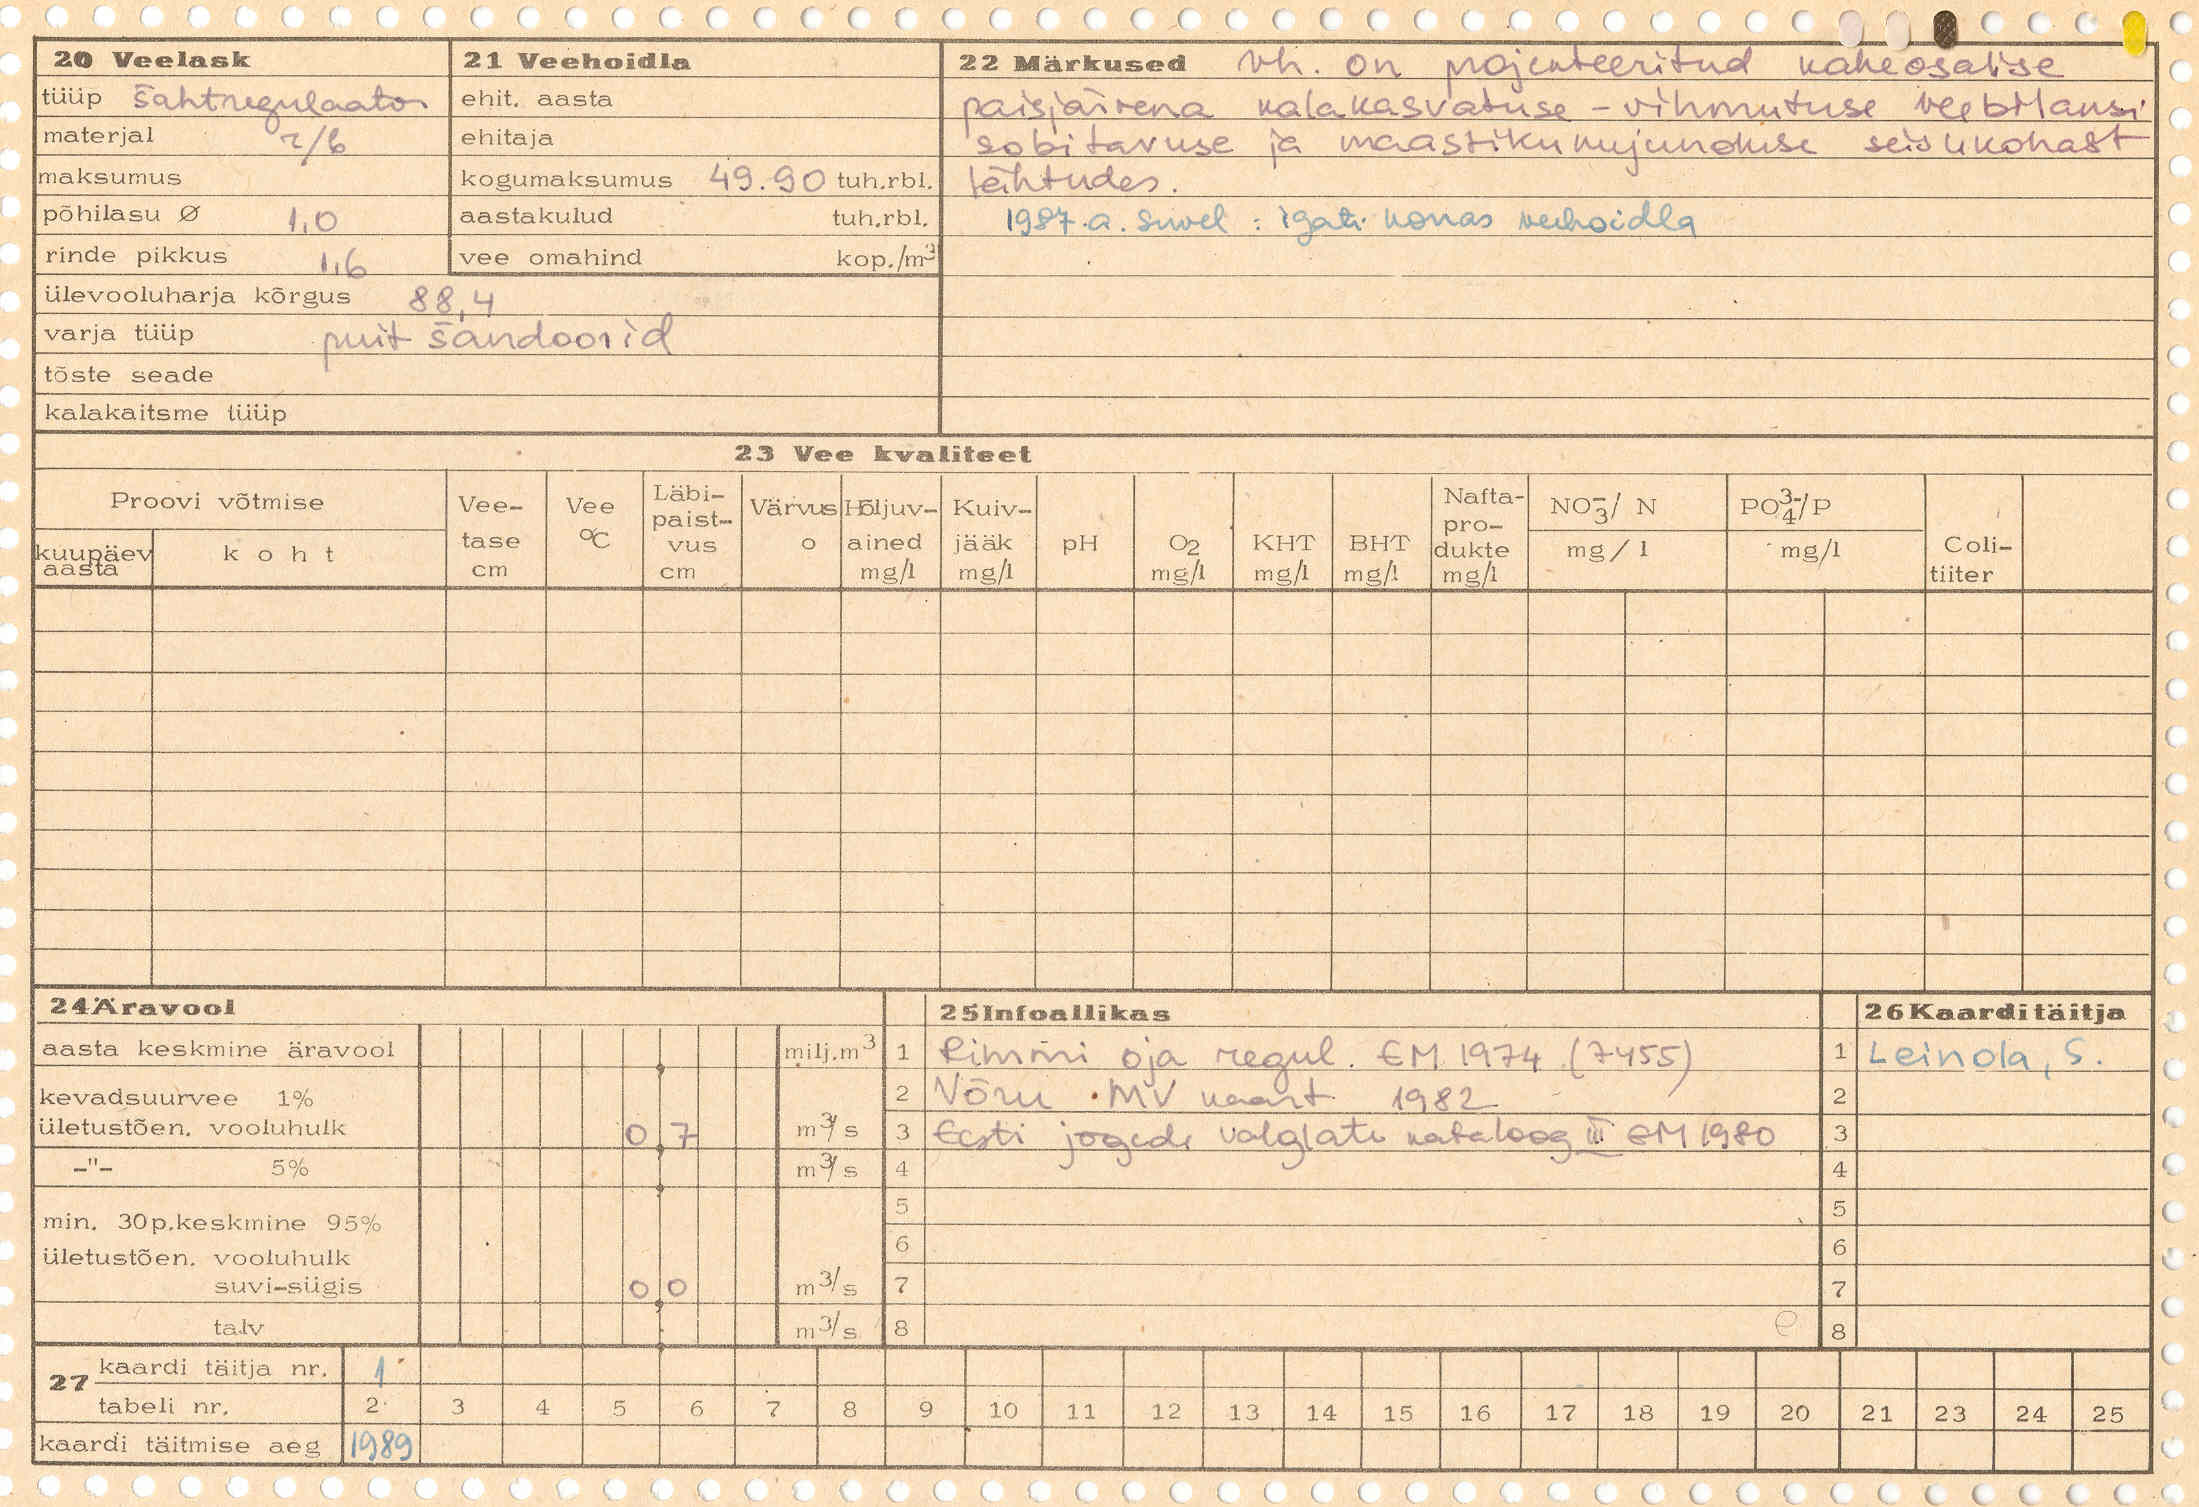 20 Veelask
tüüp šahtregulaator
materjal r/b
maksumus
põhilasu Ø 1,0
rinde pikkus 1,6
ülevooluharja kõrgus 88,4
varja tüüp puit šandoorid
tõste seade
kalakaitsme tüüp
21 Veehoidla
ehit. aasta
ehitaja
kogumaksumus 49.90 tuh.rbl.
aastakulud tuh.rbl.
vee omahind kop./m³
22 Märkused Vh. on projekteeritud kaheosalise
paisjärvena kalakasvatuse - vihmutuse veebilansi
sobitavuse ja maastikukujunduse seisukohast
lähtudes.
1987.a. suvel : igati korras veehoidla
23 Vee kvaliteet
Proovi võtmise
kuupäev aasta
koht
Vee-tase cm
Vee °C
Läbi-paist-vus cm
Värvus o
Hõljuv-ained mg/l
Kuiv-jääk mg/l
pH
O2 mg/l
KHT mg/l
BHT mg/l
Nafta-pro-dukte mg/l
NO3⁻/ N mg/l
PO4³⁻/P mg/l
Coli-tiiter
24 Äravool
aasta keskmine äravool milj.m³
kevadsuurvee 1%
ületustõen. vooluhulk 0,7 m³/s
-"- 5% m³/s
min. 30p.keskmine 95%
ületustõen. vooluhulk
suvi-sügis 0,0 m³/s
talv m³/s
25 Infoallikas
1 Rimmi oja regul. EM 1974 (7455)
2 Võru MV kaart 1982
3 Eesti jogede valglate kataloog III EM 1980
4
5
6
7
8
26 Kaardi täitja
1 Leinola, S.
2
3
4
5
6
7
8
27 kaardi täitja nr. 1
tabeli nr. 2 3 4 5 6 7 8 9 10 11 12 13 14 15 16 17 18 19 20 21 23 24 25
kaardi täitmise aeg 1989